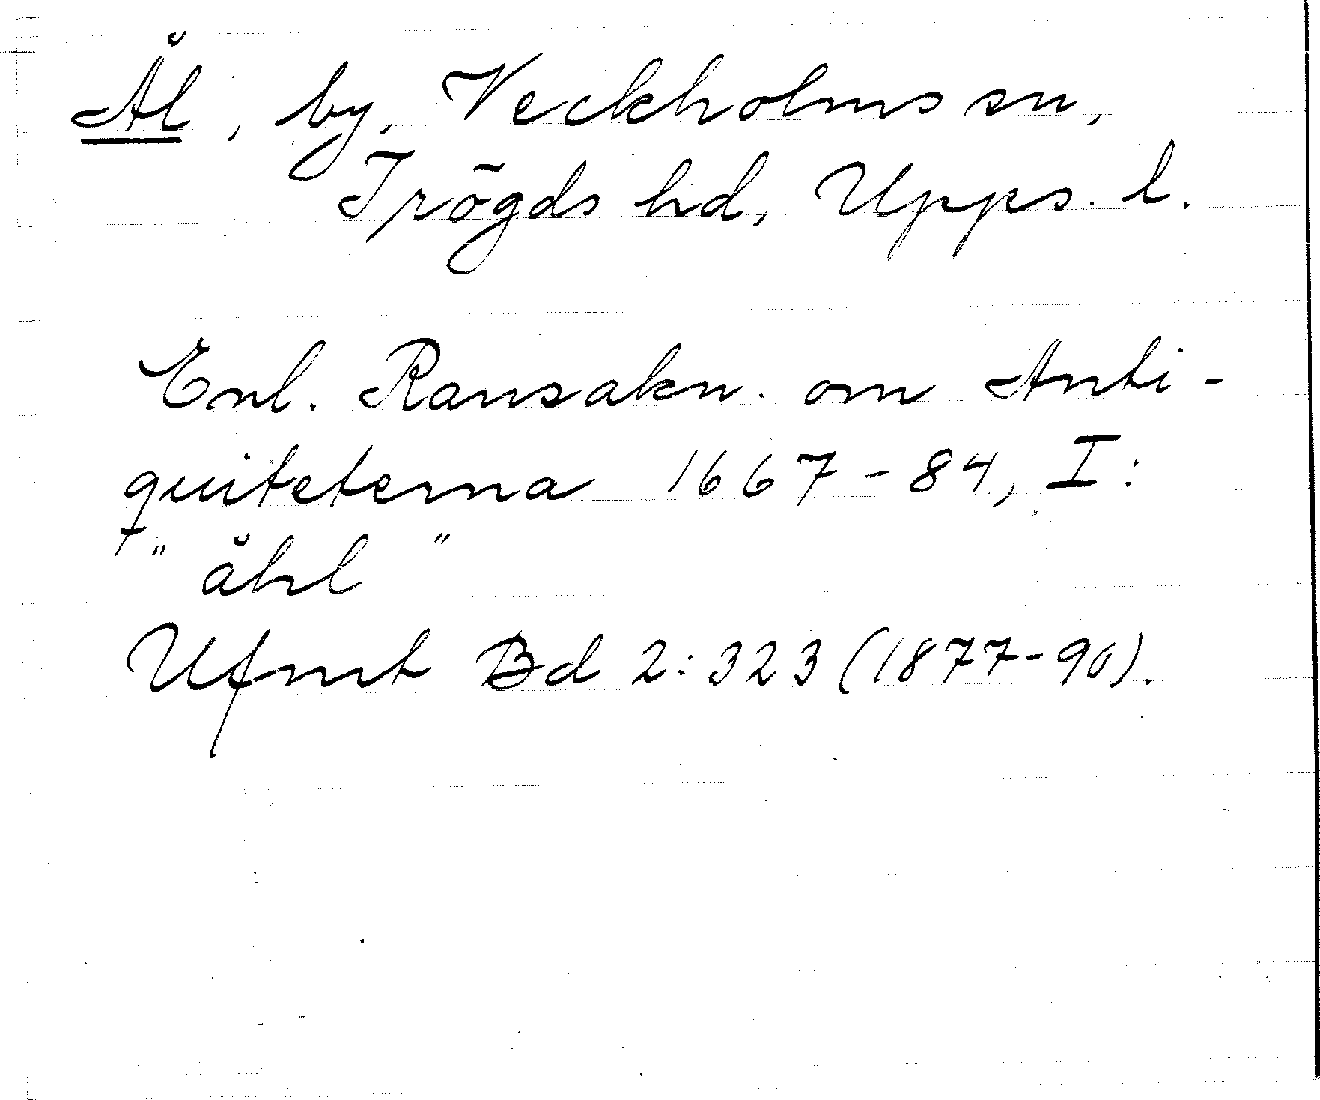 Ål, by, Veckholms sn,
Trögds hd, Upps. l.
Enl. Ransakn. om Anti-
quiteterna 1667-84, I:
"åhl"
Ufmt Bd 2:323 (1877-90).